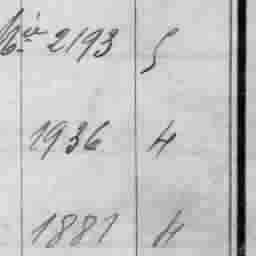 2193 5
1936 4
1881 4